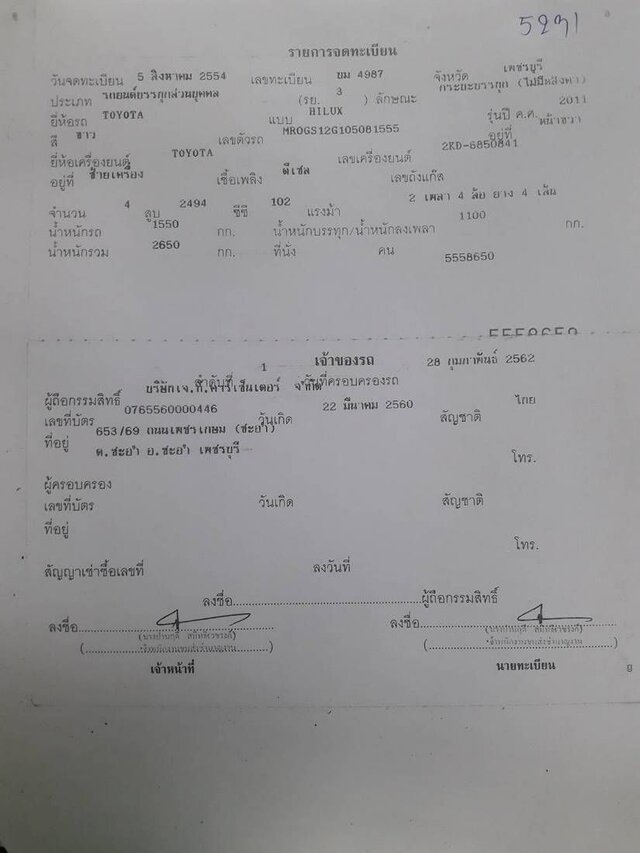 5231
รายการจดทะเบียน
วันจดทะเบียน 5 สิงหาคม 2554 เลขทะเบียน ยม 4987 จังหวัด เพชรบุรี
ประเภท รถยนต์บรรทุกส่วนบุคคล (รย. 3 ) ลักษณะ กระบะบรรทุก (ไม่มีหลังคา)
ยี่ห้อรถ TOYOTA แบบ HILUX รุ่นปี ค.ศ. 2011
สี ขาว เลขตัวรถ MROGS12G105081555 อยู่ที่ หน้าขวา
ยี่ห้อเครื่องยนต์ TOYOTA เลขเครื่องยนต์ 2KD-6850841
อยู่ที่ ซ้ายเครื่อง เชื้อเพลิง ดีเซล เลขถังแก๊ส
จำนวน 4 สูบ 2494 ซีซี 102 แรงม้า 2 เพลา 4 ล้อ ยาง 4 เส้น
น้ำหนักรถ 1550 กก. น้ำหนักบรรทุก/น้ำหนักลงเพลา 1100 กก.
น้ำหนักรวม 2650 กก. ที่นั่ง คน 5558650
เจ้าของรถ
ลำดับที่ 1 วันที่ครอบครองรถ 28 กุมภาพันธ์ 2562
ผู้ถือกรรมสิทธิ์ บริษัทเจ.ที.คาร์เซ็นเตอร์ จำกัด
เลขที่บัตร 0765560000446 วันเกิด 22 มีนาคม 2560 สัญชาติ ไทย
ที่อยู่ 653/69 ถนนเพชรเกษม (ชะอำ)
ต.ชะอำ อ.ชะอำ เพชรบุรี
โทร.
ผู้ครอบครอง
เลขที่บัตร วันเกิด สัญชาติ
ที่อยู่
โทร.
สัญญาเช่าซื้อเลขที่ ลงวันที่
ลงชื่อ ผู้ถือกรรมสิทธิ์
ลงชื่อ ลงชื่อ
เจ้าหน้าที่ นายทะเบียน